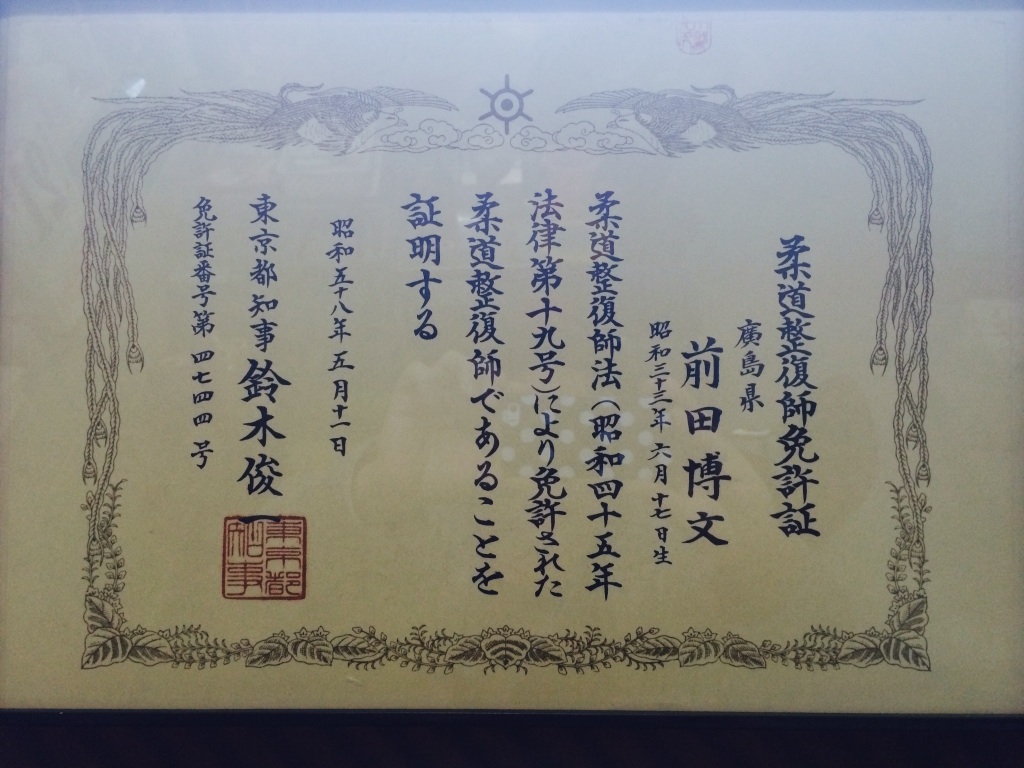 柔道整復師免許証
廣島県
前田博文
昭和三十三年六月十七日生
柔道整復師法（昭和四十五年
法律第十九号）により免許された
柔道整復師であることを
証明する
昭和五十八年五月十一日
東京都知事 鈴木俊一
東京都知事
免許証番号第四七四四号